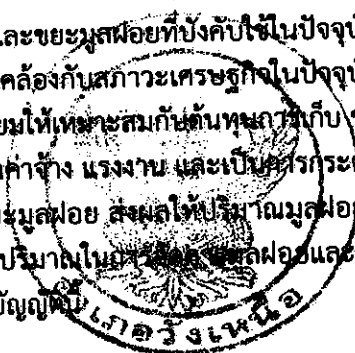 และขยะมูลฝอยที่บังคับใช้ในปัจจุบ
คล้องกับสภาวะเศรษฐกิจในปัจจุบั
ยมให้เหมาะสมกับต้นทุนการเก็บ
ค่าจ้าง แรงงาน และเป็นการกระต
ยะมูลฝอย ส่งผลให้ปริมาณมูลฝอย
ปริมาณในการ มูลฝอยและ
บัญญัตินี้
เภอวังเหนือ